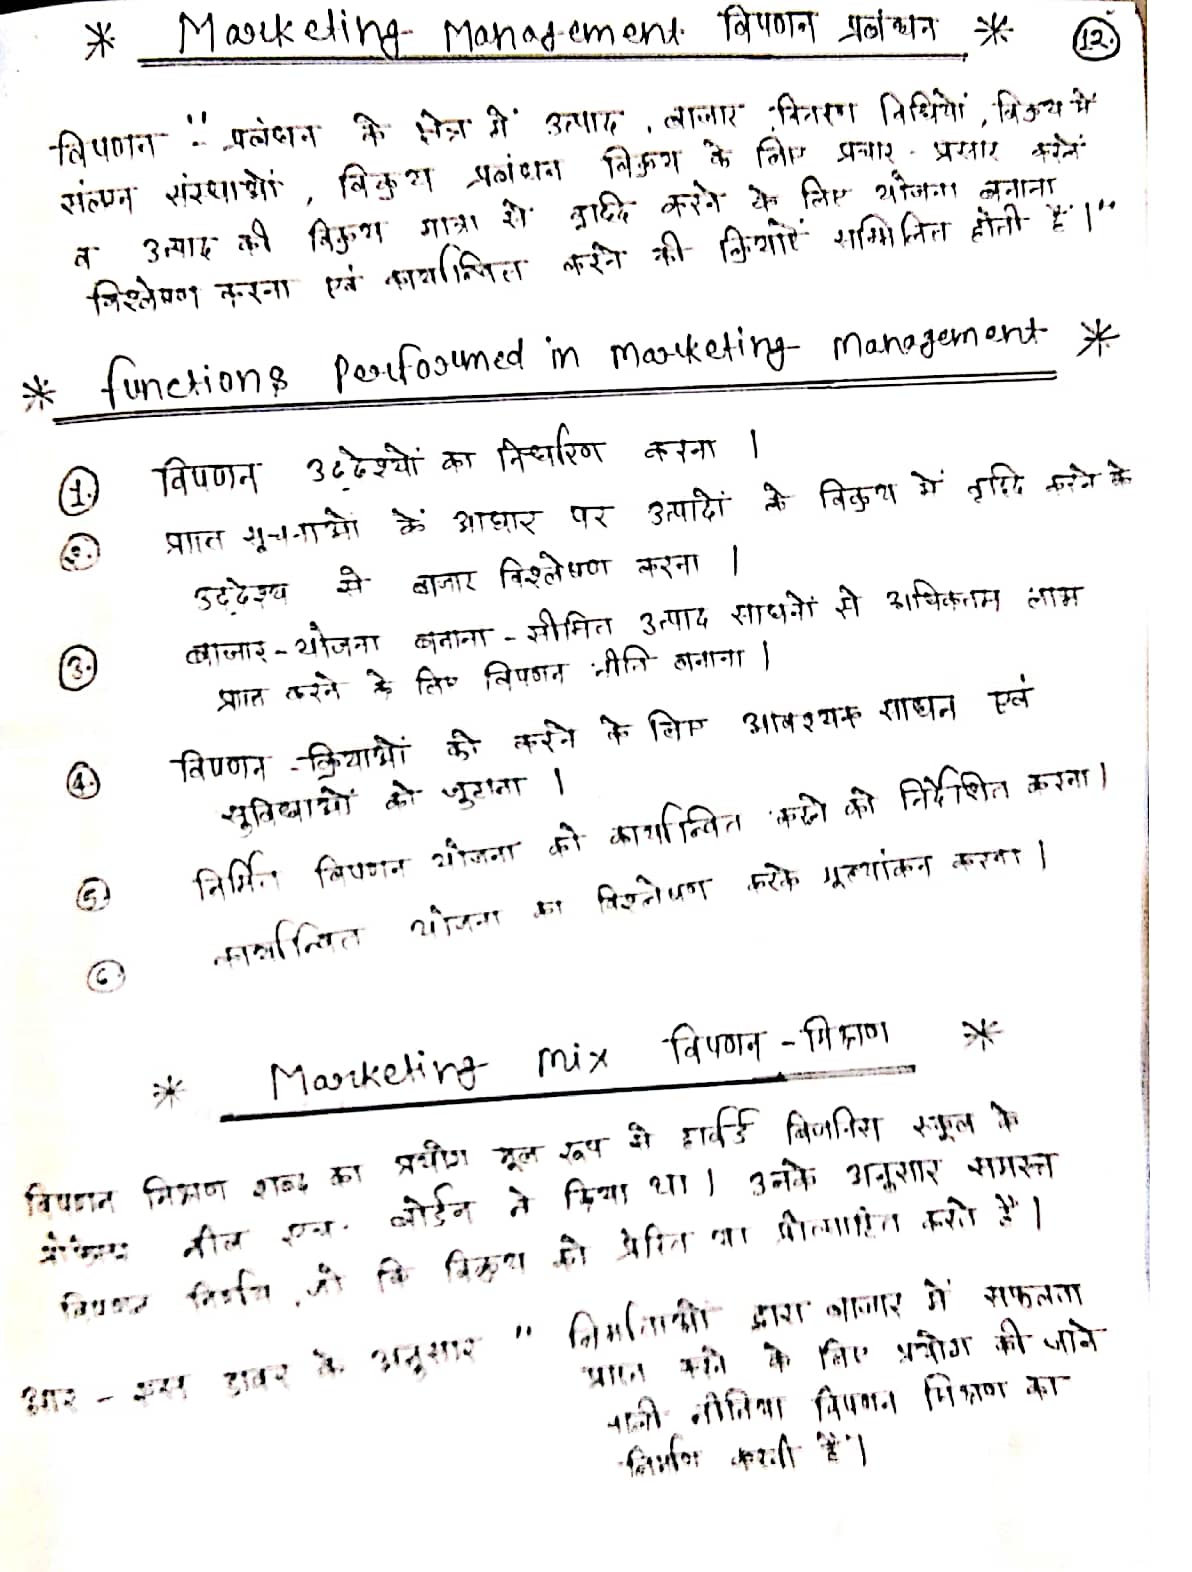 * Marketing Management विपणन प्रबंधन * 12.
विपणन " प्रबंधन के क्षेत्र में उत्पाद, बाजार, वितरण विधियों, विक्रय में
संलग्न संस्थाओं, विक्रय प्रबंधन विक्रय के लिए प्रचार - प्रसार करने
व उत्पाद की विक्रय मात्रा में वृद्धि करने के लिए योजना बनाना
विश्लेषण करना एवं कार्यान्वित करने की क्रियाऐं सम्मिलित होती हैं।"
* functions Performed in Marketing Management *
1. विपणन उद्देश्यों का निर्धारण करना।
2. प्राप्त सूचनाओं के आधार पर उत्पादों के विक्रय में वृद्धि करने के
उद्देश्य से बाजार विश्लेषण करना।
3. बाजार - योजना बनाना - सीमित उत्पाद साधनों से अधिकतम लाभ
प्राप्त करने के लिए विपणन नीति बनाना।
4. विपणन - क्रियाओं को करने के लिए आवश्यक साधन एवं
सुविधाओं को जुटाना।
5. निर्मित विपणन योजना को कार्यान्वित करने को निर्देशित करना।
6. कार्यान्वित योजना का विश्लेषण करके मूल्यांकन करना।
* Marketing mix विपणन - मिश्रण *
विपणन मिश्रण शब्द का प्रयोग मूल रूप से हार्वर्ड बिजनिस स्कूल के
नील एच. बोर्डन ने किया था। उनके अनुसार समस्त
विपणन निर्णय, जो कि विक्रय को प्रेरित या प्रोत्साहित करते हैं।
आर - एस डावर के अनुसार " निर्माताओं द्वारा बाजार में सफलता
प्राप्त करने के लिए प्रयोग की जाने
वाली नीतिया विपणन मिश्रण का
निर्माण करती हैं"।